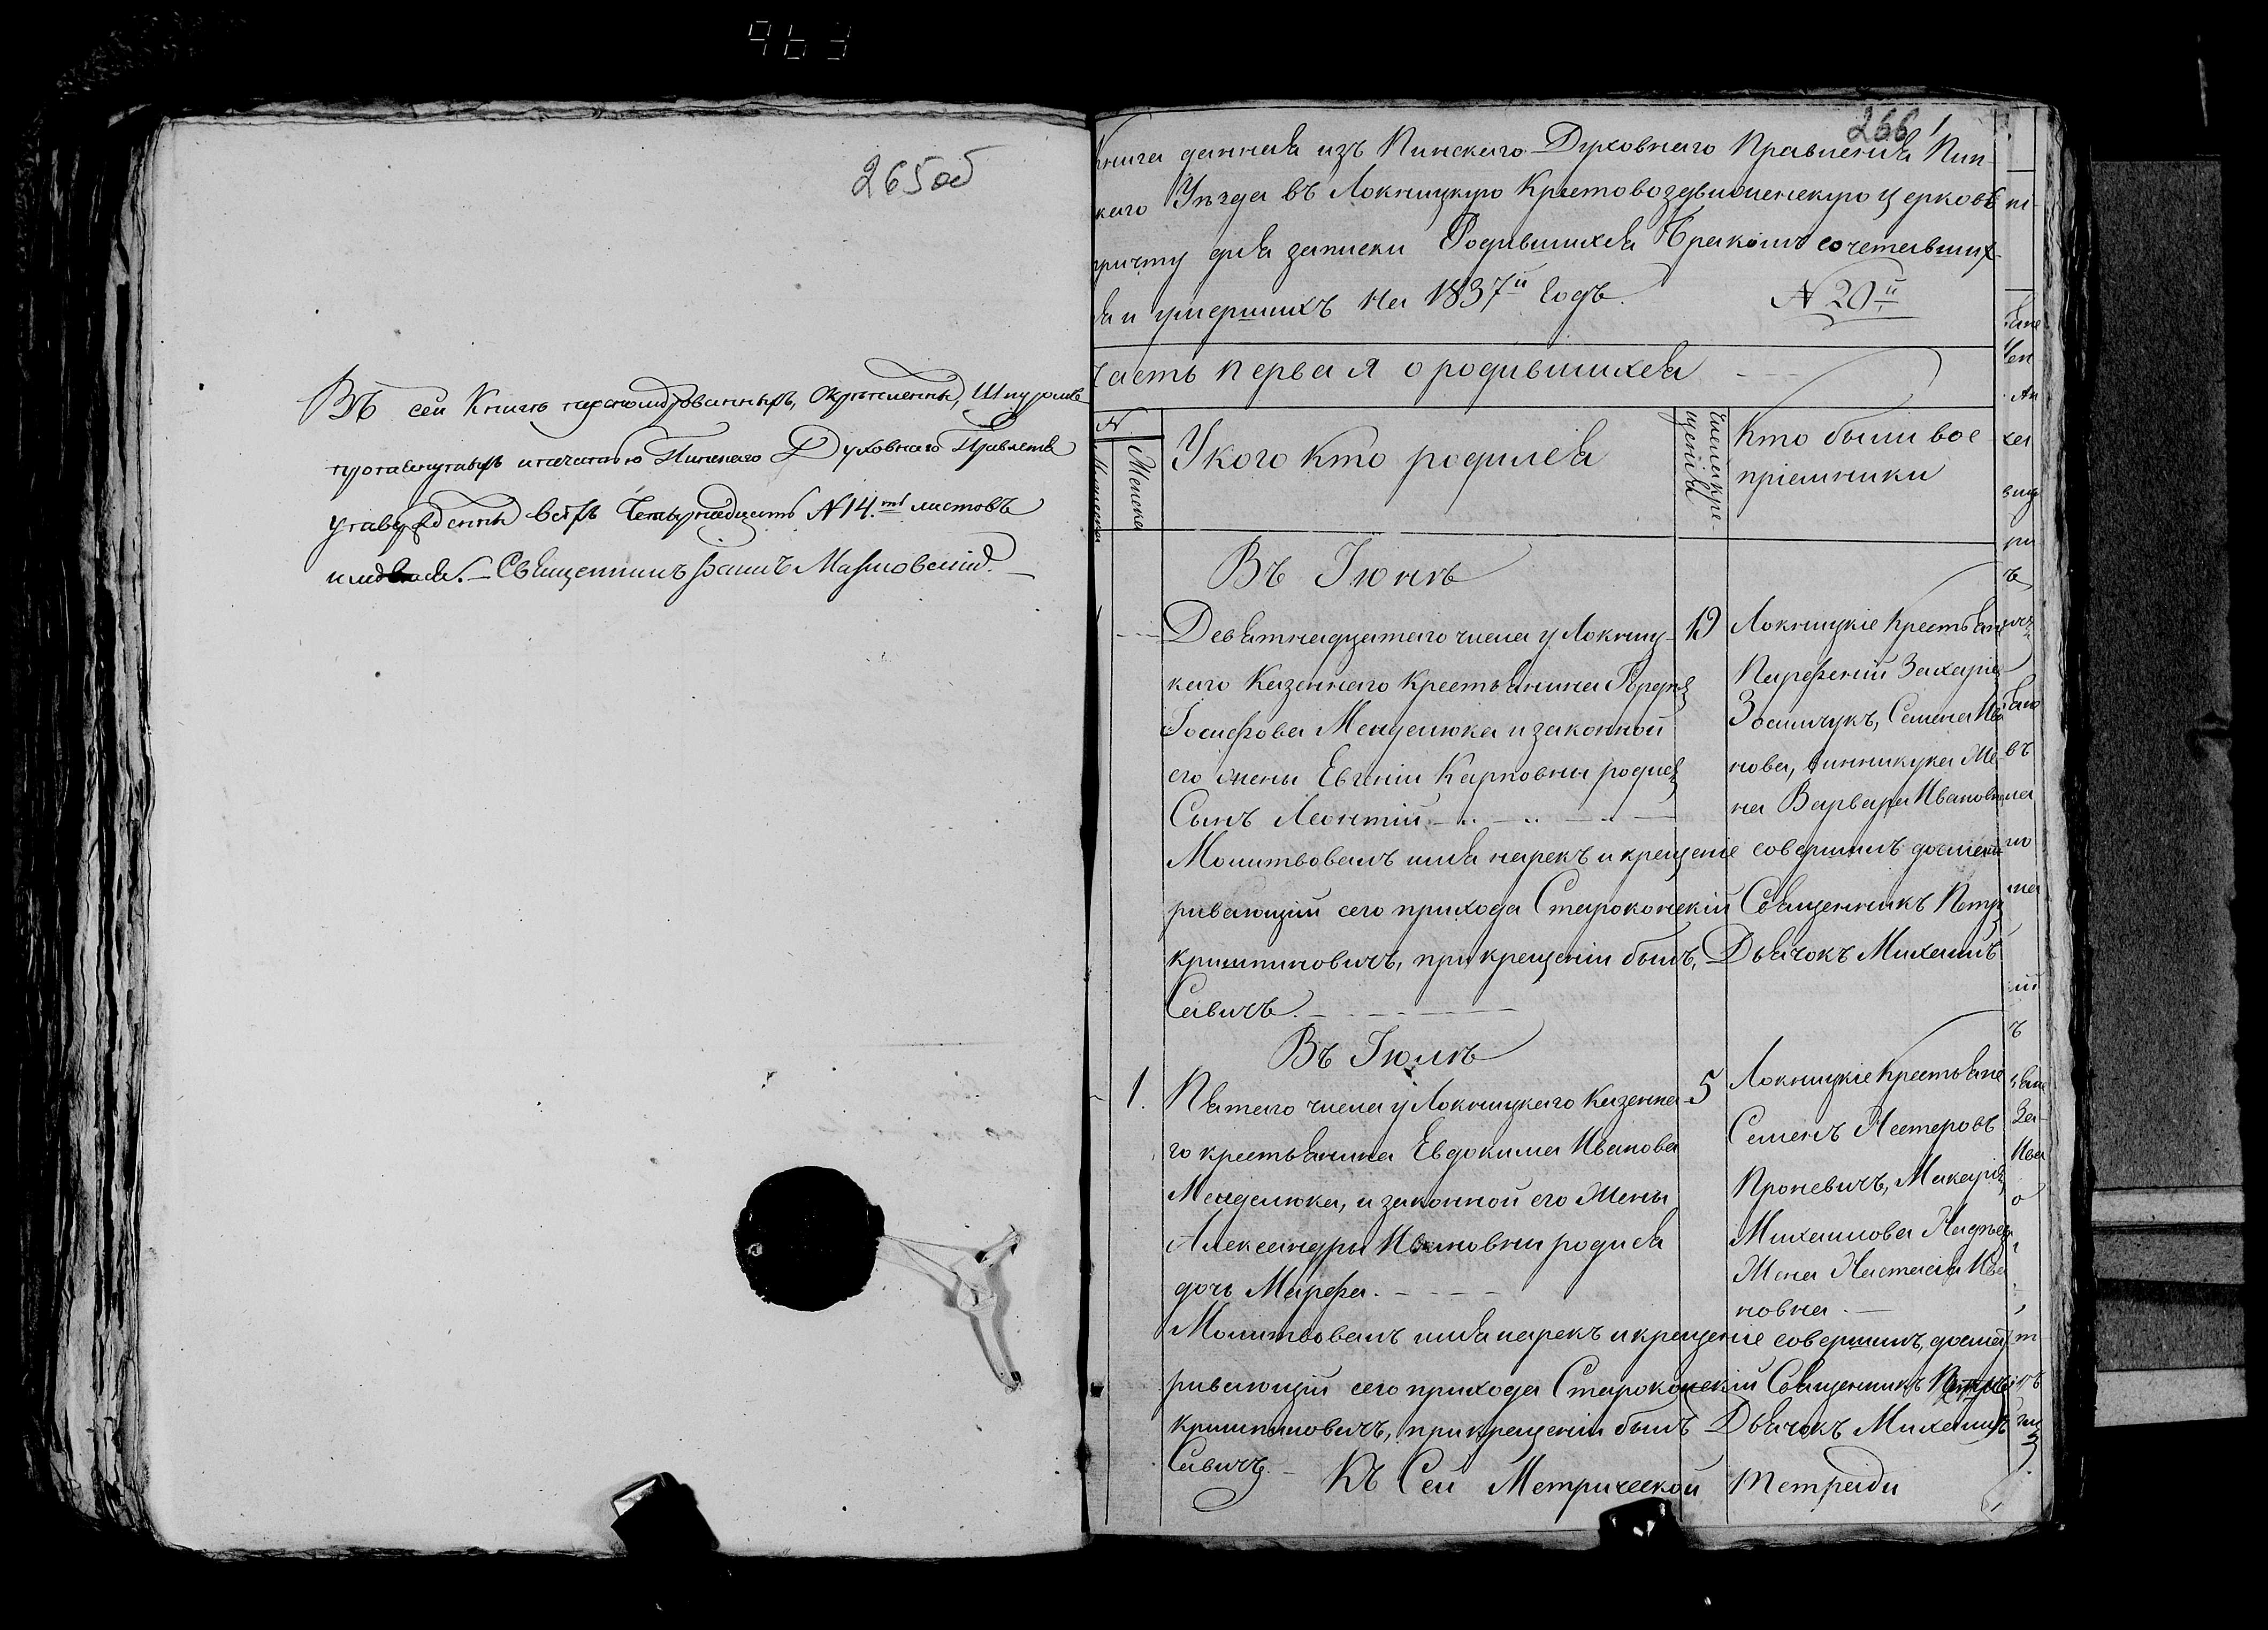 963
265об
Въ сей Книгѣ перономированныхъ, Скрѣпленны, Шнуромъ
и печатью Пинскаго Духовнаго Правленія
всѣхъ Четырнадцать N 14.ть листовъ
Священникъ
266 1
нига данная изъ Пинскаго Духовнаго Правленія Пин
каго Уѣзда въ Локницкую Крестовоздвиженскую церковь
причту для записки Родившихся Бракомъ сочетавших
ся и умершихъ на 1837й Годъ. N 20й
Часть первая о родившихся
N
Мужеска
Женска
У кого кто родился
Числа крещенія
Кто были вос
пріемники
Въ Іюнѣ
Девятнадцатаго числа у Локниц
каго Казеннаго Крестьянина
Іосифова Менделюка и законной
его жены Евгеніи Карповны родился
Сынъ Леонтій
19
Локницкіе Крестьяне
Парфеній Захаріев
Зоащукъ, Семена Ива
нова, Винникука Же
на Варвара Ивановна
Молитвовалъ имя нарекъ и крещеніе совершилъ досмот
ривающій сего прихода Староконскій Священникъ Петръ
криштиновичъ, при крещеніи былъ, Дьячокъ Михаилъ
Савичъ.
Въ Іюлѣ
1.
Пятаго числа у Локницкаго Казенна
го крестьянина Евдокима Иванова
Менделюка, и законной его Жены
Александры Ивановны родися
дочь Марфа.
5
Локницкіе Крестьяне
Семенъ Нестеровъ
Проневичъ, Макарія
Михаилова
Жена Настасія Ива
новна.
Молитвовалъ имя нарекъ и крещеніе совершилъ, досмот
ривающій сего прихода Староконскій Священникъ Петръ
криштиновичъ, при крещеніи былъ Дьячокъ Михаилъ
Савичъ.
Къ Сей Метрической Тетради